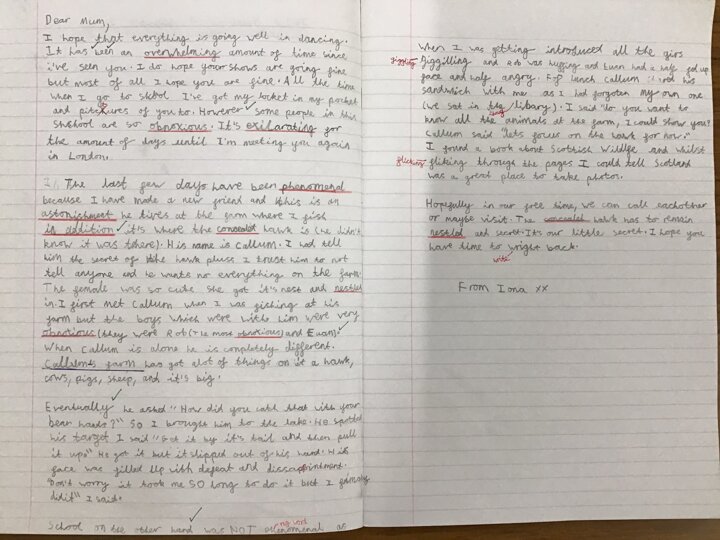 Dear Mum,
I hope that everything is going well in dancing.
It has been an overwhelming amount of time since
i've seen you. I do hope your shows are going fine
but most of all I hope you are fine. All the time
when I go to school I've got my locket in my pocket
and pitchures of you to. However some people in this
shchool are so obnoxious. It's exilarating for
the amount of days until I'm meeting you again
in London.
The last few days have been phenomenal
because I have made a new friend and this is an
astonishment he lives at the farm where I fish
in addition it's where the concealed hawk is (he didn't
know it was there). His name is Callum. I had tell
him the secret of the hawk pluss I trust him to not
tell anyone and he wants no everything on the farm.
The female was so cute she got it's nest and nestled
in. I first met Callum when I was fishing at his
farm but the boys which were with him were very
obnoxious (they were Rob (the most obnoxious) and Euan).
When Callum is alone he is completely different.
Callum's farm has got alot of things on it a hawk,
cows, pigs, sheep, and it's big.
Eventually he asked "How did you catch that with your
bear hands?" So I brought him to the lake. He spotted
his target I said "Get it by it's tail and then pull
it up" He got it but it slipped out of his hand. His
face was filled up with defeat and dissapointment.
"Don't worry it took me SO long to do it but I finally
did it" I said.
School on the other hand was NOT phenomenal as
When I was getting introduced all the girs
giggling
Giggilling and Rob was huffing and Euan had a half fed up
face and half angry. For lunch Callum shared his
sandwich with me as I had forgoten my own one
(we sat in the libary). I said "do you want to
know all the animals at the farm, I could show you?
Callum said "lets focus on the hawk for now."
I found a book about Scottish Wildlife and whilst
flicking
fliking through the pages I could tell Scotland
was a great place to take photos.
Hopefully in our free time, we can call eachother
or maybe visit. The concealed hawk has to remain
nestled and secret. It's our little secret. I hope you
have time to wright back.
write
From Iona xx